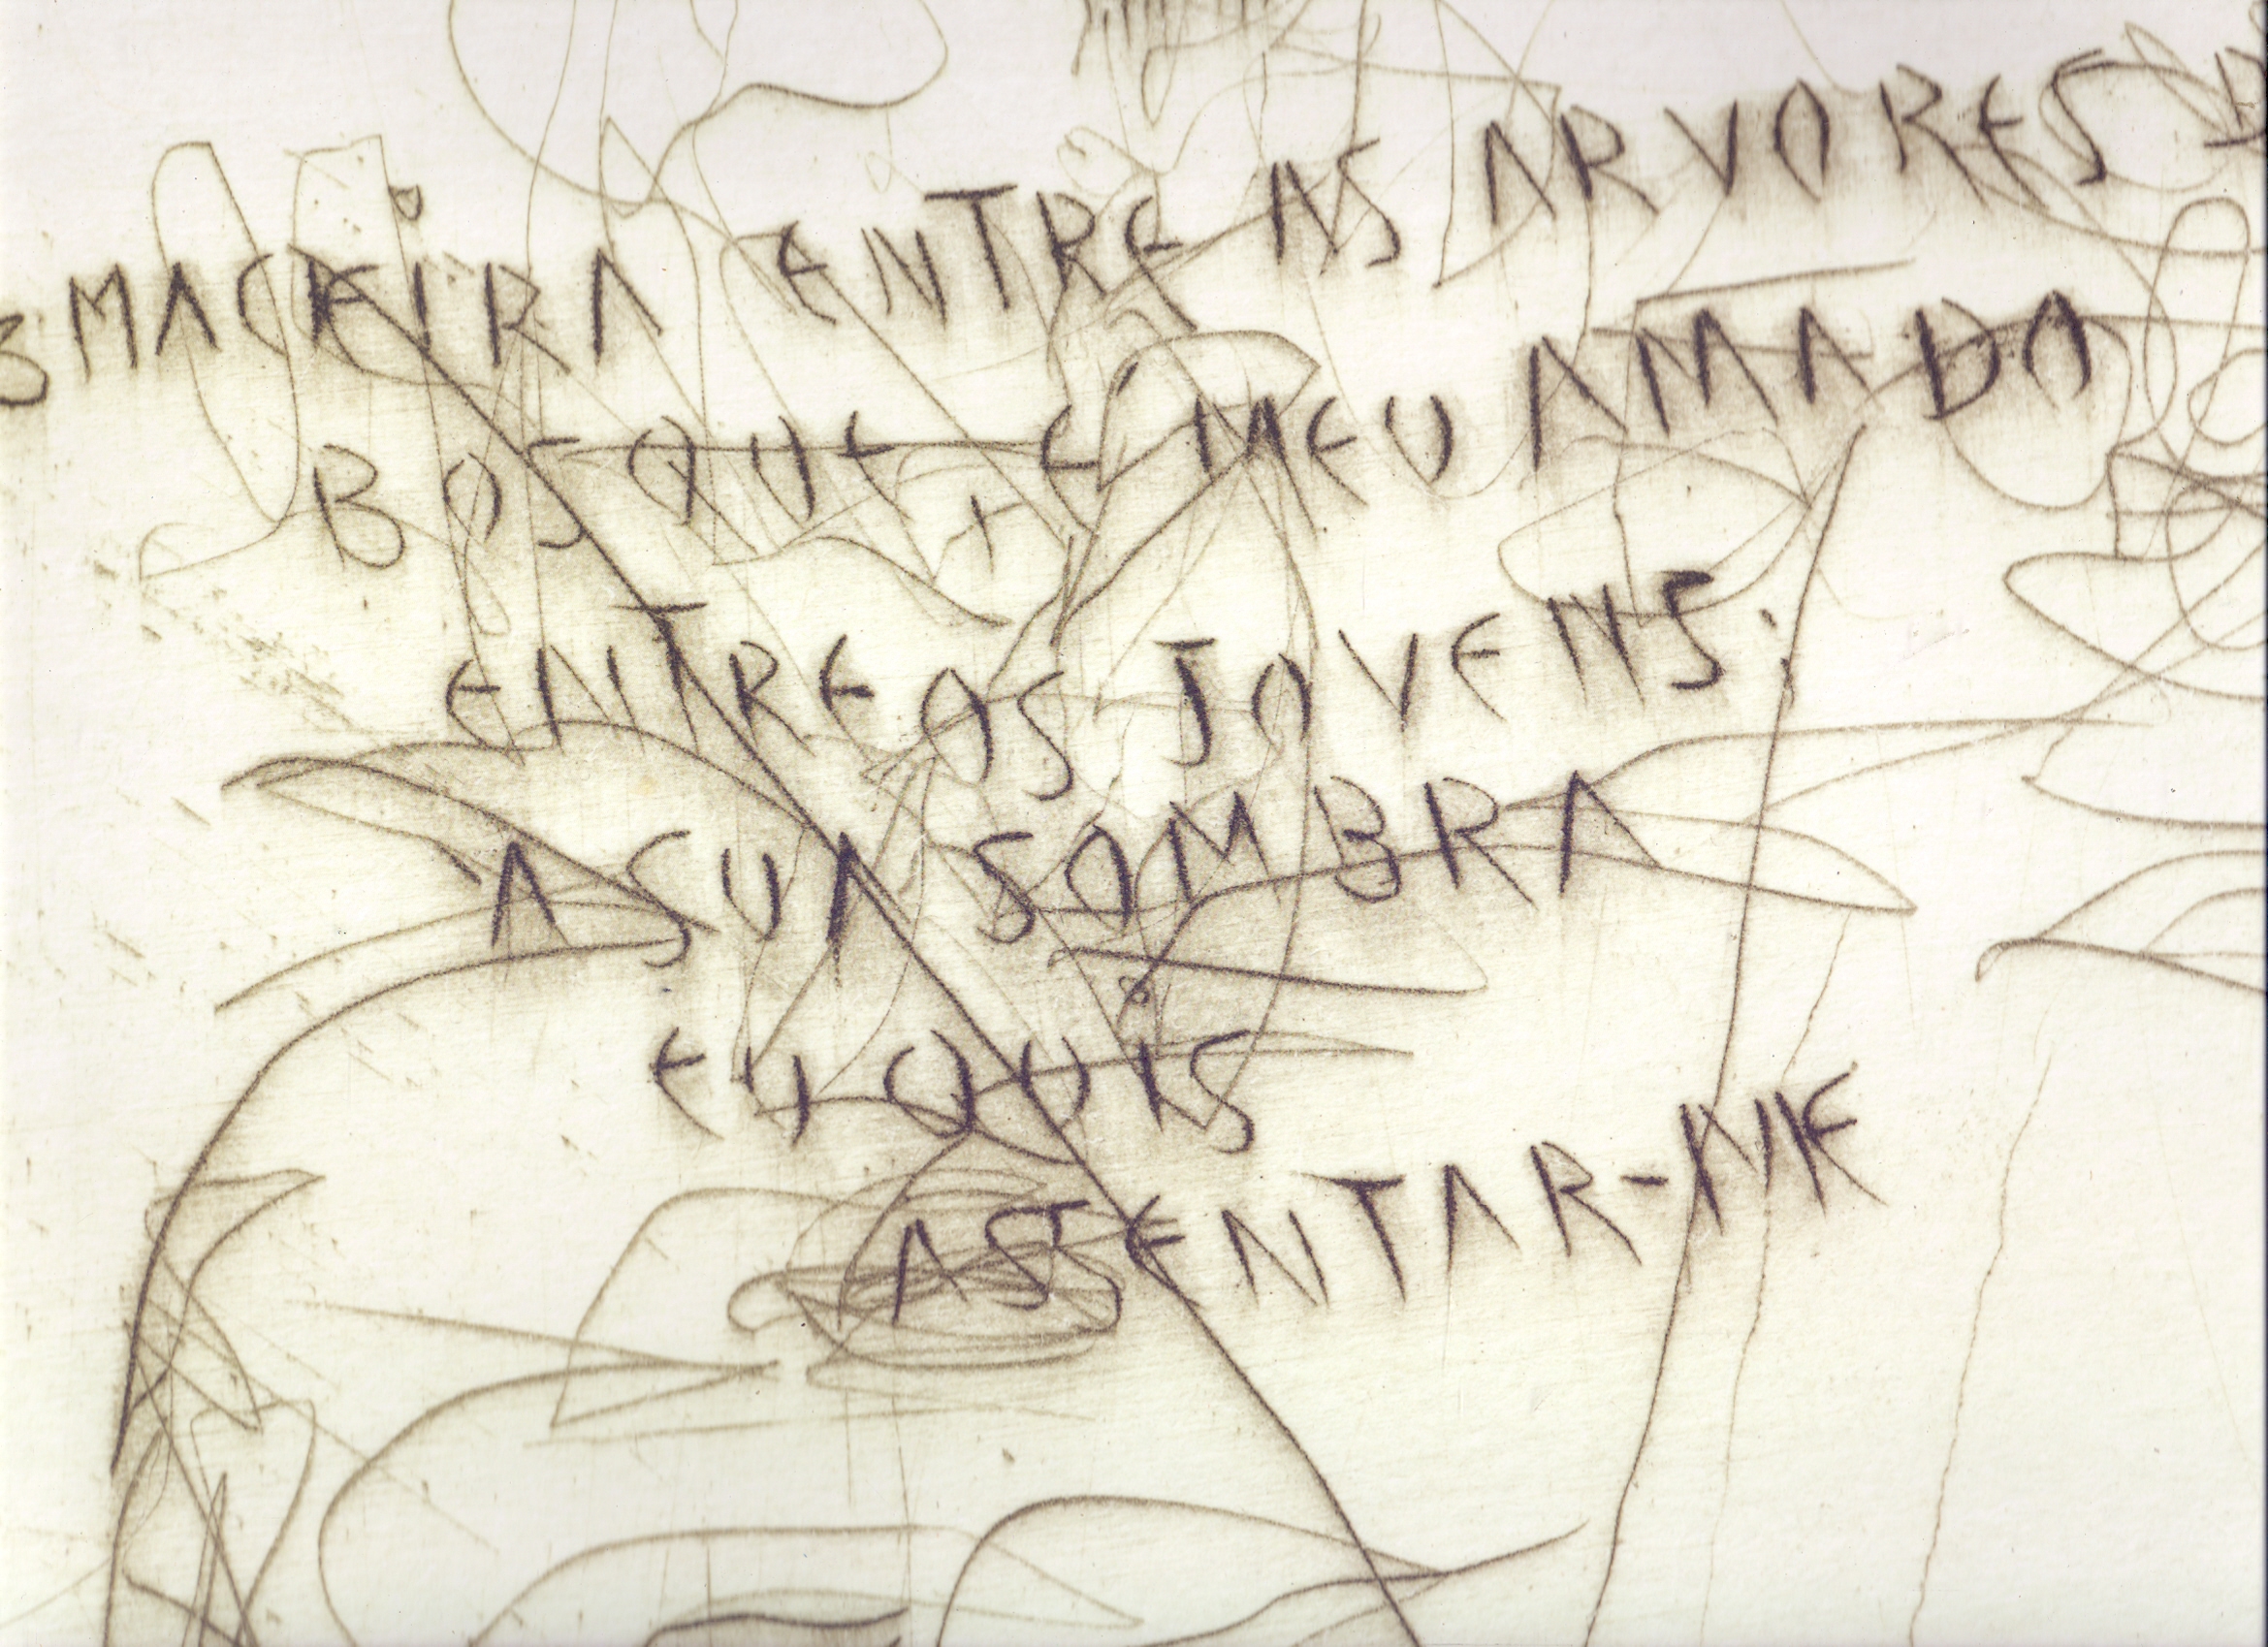 3 MACEIRA ENTRE AS ARVORES D
BOSQUE + E MEU AMADO
ENTRE OS JOVENS;
A SUA SOMBRA
EU QUIS
ASSENTAR-ME